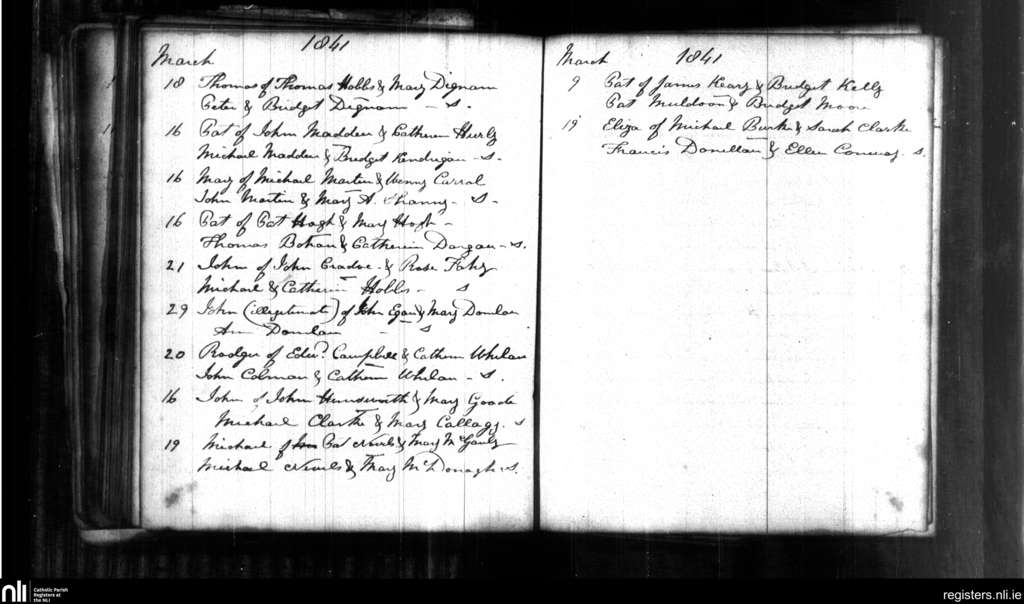 1841
March
18 Thomas of Thomas Hobbs & Mary Dignam
Peter & Bridget Dignam - S.
16 Pat of John Madden & Catherin Hurly
Michael Madden & Bridget Kendrigan - S.
16 Mary of Michael Martin & Winny Carral
John Martin & Mary A. Shanny - S -
16 Pat of Pat & Mary
Thomas Bohan & Catherin Dargan - S.
21 John of John Cradoc & Rose Fahy
Michael & Catherin Hobbs - S
29 John (illegitimate) of John Egan & Mary Donelan
Ann Donelan - S
20 Rodger of Edwd. Campbell & Cathern Whelan
John Colman & Cathern Whelan - S.
16 John of John & Mary Goode
Michael Clarke & Mary Callagy. S
19 Michael of Pat Nevils & Mary McGauly
Michael Nevils & Mary McDonagh S.
1841
March
9 Pat of James Keary & Bridget Kelly
Pat Muldoon & Bridget Moore
19 Eliza of Michael Burke & Sarah Clarke
Francis Donellan & Ellen Conway. S.
nli
Catholic Parish
Registers at
the NLI
registers.nli.ie